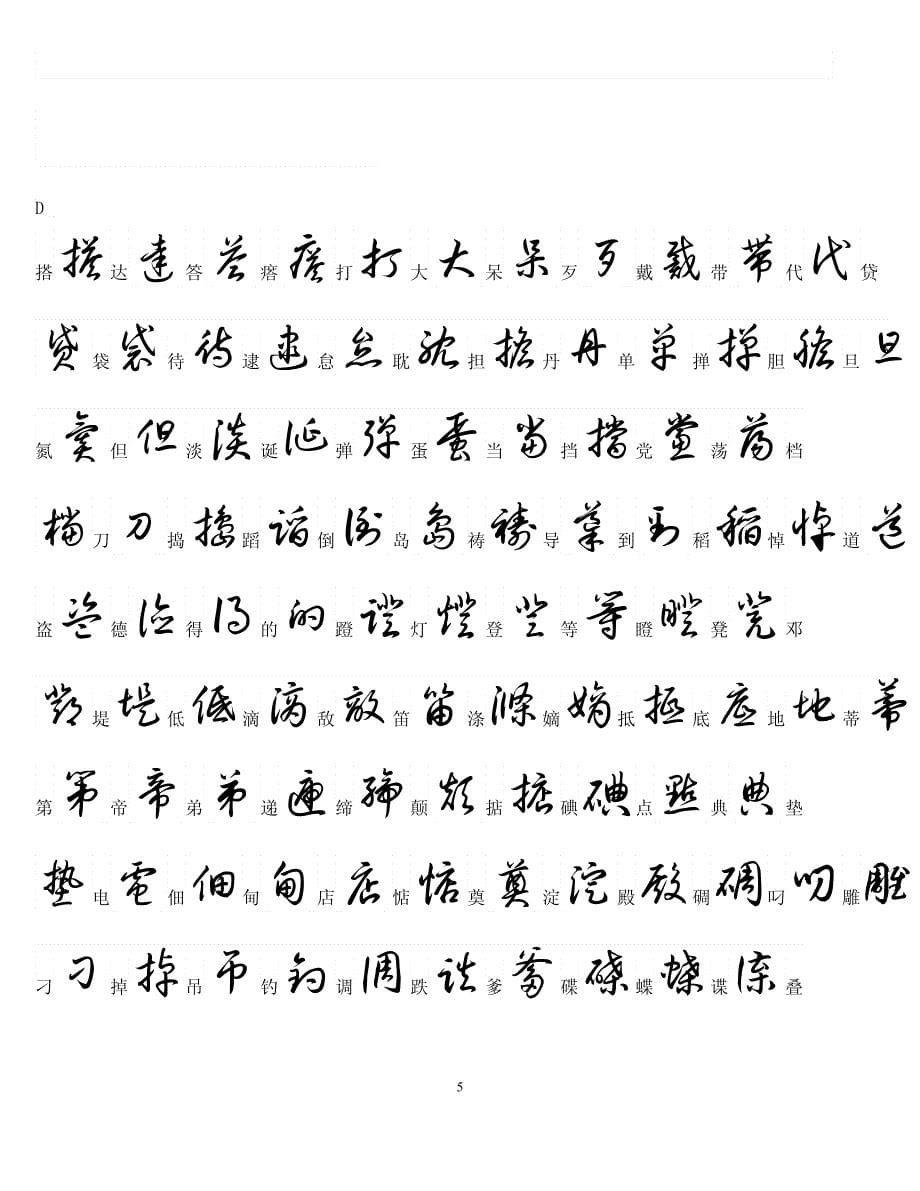 D
搭搭达達答答瘩瘩打打大大呆呆歹歹戴戴带帶代代贷
貸袋袋待待逮逮怠怠耽耽担擔丹丹单單掸撣胆膽旦旦
氮氮但但淡淡诞誕弹彈蛋蛋当當挡擋党黨荡蕩档
檔刀刀捣搗蹈蹈倒倒岛島祷禱导導到到稻稻悼悼道道
盗盜德德得得的的蹬蹬灯燈登登等等瞪瞪凳凳邓
鄧堤堤低低滴滴敌敵笛笛涤滌嫡嫡抵抵底底地地蒂蒂
第第帝帝弟弟递遞缔締颠顛掂掂碘碘点點典典垫
墊电電佃佃甸甸店店惦惦奠奠淀淀殿殿碉碉叼叼雕雕
刁刁掉掉吊吊钓釣调調跌跌爹爹碟碟蝶蝶谍諜叠
5